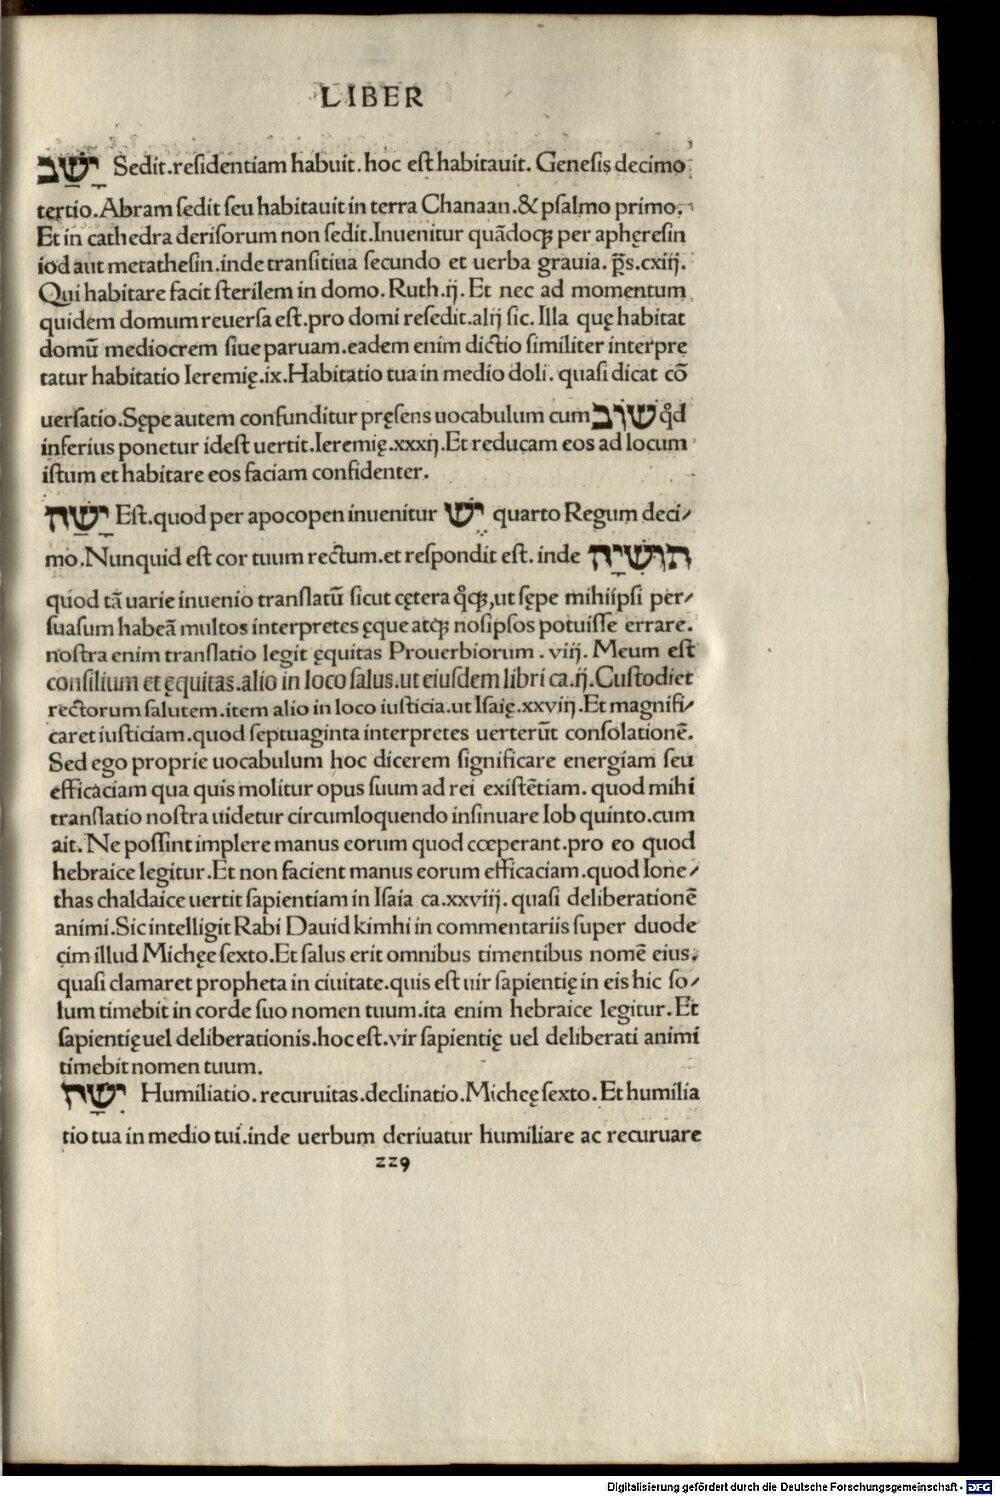 LIBER
יָשַׁב Sedit.residentiam habuit.hoc est habitauit. Genesis decimo
tertio.Abram sedit seu habitauit in terra Chanaan.& psalmo primo.
Et in cathedra derisorum non sedit.Inuenitur quādoqꝫ per apheręsin
iod aut metathesin.inde transitiua secundo et uerba grauia. p̄s.cxiij.
Qui habitare facit sterilem in domo. Ruth.ij. Et nec ad momentum
quidem domum reuersa est.pro domi resedit.alij sic. Illa quę habitat
domū mediocrem siue paruam.eadem enim dictio similiter interpre
tatur habitatio Ieremię.ix.Habitatio tua in medio doli. quasi dicat cō
uersatio.Sępe autem confunditur pręsens uocabulum cum שׁוּב qd̄
inferius ponetur idest uertit.Ieremię.xxxij.Et reducam eos ad locum
istum et habitare eos faciam confidenter.
יָשַׁה Est.quod per apocopen inuenitur יֵשׁ quarto Regum deci/
mo.Nunquid est cor tuum rectum.et respondit est. inde תּוּשִׁיָּה
quod tā uarie inuenio translatū sicut cętera qͦqꝫ,ut sępe mihiipsi per/
suasum habeā multos interpretes ęque atqꝫ nosipsos potuisse errare.
nostra enim translatio legit ęquitas Prouerbiorum . viij. Meum est
consilium et ęquitas.alio in loco salus.ut eiusdem libri ca.ij.Custodiet
rectorum salutem.item alio in loco iusticia.ut Isaię.xxviij.Et magnifi/
caret iusticiam.quod septuaginta interpretes uerterūt consolationē.
Sed ego proprie uocabulum hoc dicerem significare energiam seu
efficaciam qua quis molitur opus suum ad rei existētiam. quod mihi
translatio nostra uidetur circumloquendo insinuare Iob quinto.cum
ait. Ne possint implere manus eorum quod cœperant.pro eo quod
hebraice legitur.Et non facient manus eorum efficaciam.quod Ione/
thas chaldaice uertit sapientiam in Isaia ca.xxviij. quasi deliberationē
animi.Sic intelligit Rabi Dauid kimhi in commentariis super duode
cim illud Michęe sexto.Et salus erit omnibus timentibus nomē eius.
quasi clamaret propheta in ciuitate.quis est uir sapientię in eis hic so/
lum timebit in corde suo nomen tuum.ita enim hebraice legitur.Et
sapientię uel deliberationis.hoc est.vir sapientię uel deliberati animi
timebit nomen tuum.
יָשַׁח Humiliatio.recuruitas.declinatio.Michęe sexto.Et humilia
tio tua in medio tui.inde uerbum deriuatur humiliare ac recuruare
229
Digitalisierung gefördert durch die Deutsche Forschungsgemeinschaft - DFG